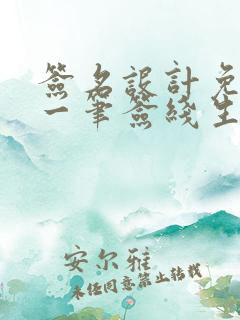 簽名設計免
一筆簽綫生
安尔雅
未经同意禁止转载